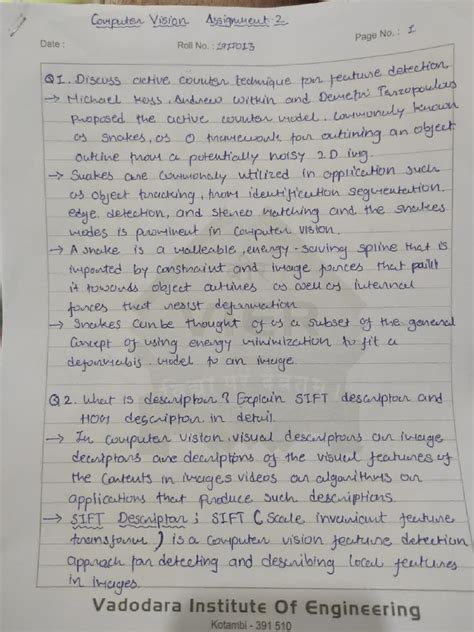 Computer Vision Assignment 2
Date :
Roll No. : 19IT013
Page No. : 1
Q1. Discuss active counter technique for feature detection.
→ Michael Kass, Andrew Witkin and Demetri Terzopoulos
proposed the active counter model. Commonly known
as snakes, as a framework for outlining an object
outline from a potentially noisy 2D img.
→ Snakes are commonly utilized in application such
as object tracking, from identification segmentation,
edge detection, and stereo matching and the snakes
modes is prominent in computer vision.
→ A snake is a malleable, energy-saving spline that is
imported by constraint and image forces that pull
it towards object outlines as well as internal
forces that resist deformation
→ Snakes can be thought of as a subset of the general
concept of using energy minimization to fit a
deformabis model to an image.
Q2. What is descriptor? Explain SIFT descriptor and
HOG descriptor in detail.
→ In computer vision, visual descriptors or image
decriptors are decriptions of the visual features of
the contents in images videos or algorithms or
applications that produce such descriptions.
→ SIFT Descriptor: SIFT (Scale invariant feature
transform) is a computer vision feature detection
approach for detecting and describing local features
in images.
Vadodara Institute Of Engineering
Kotambi - 391 510